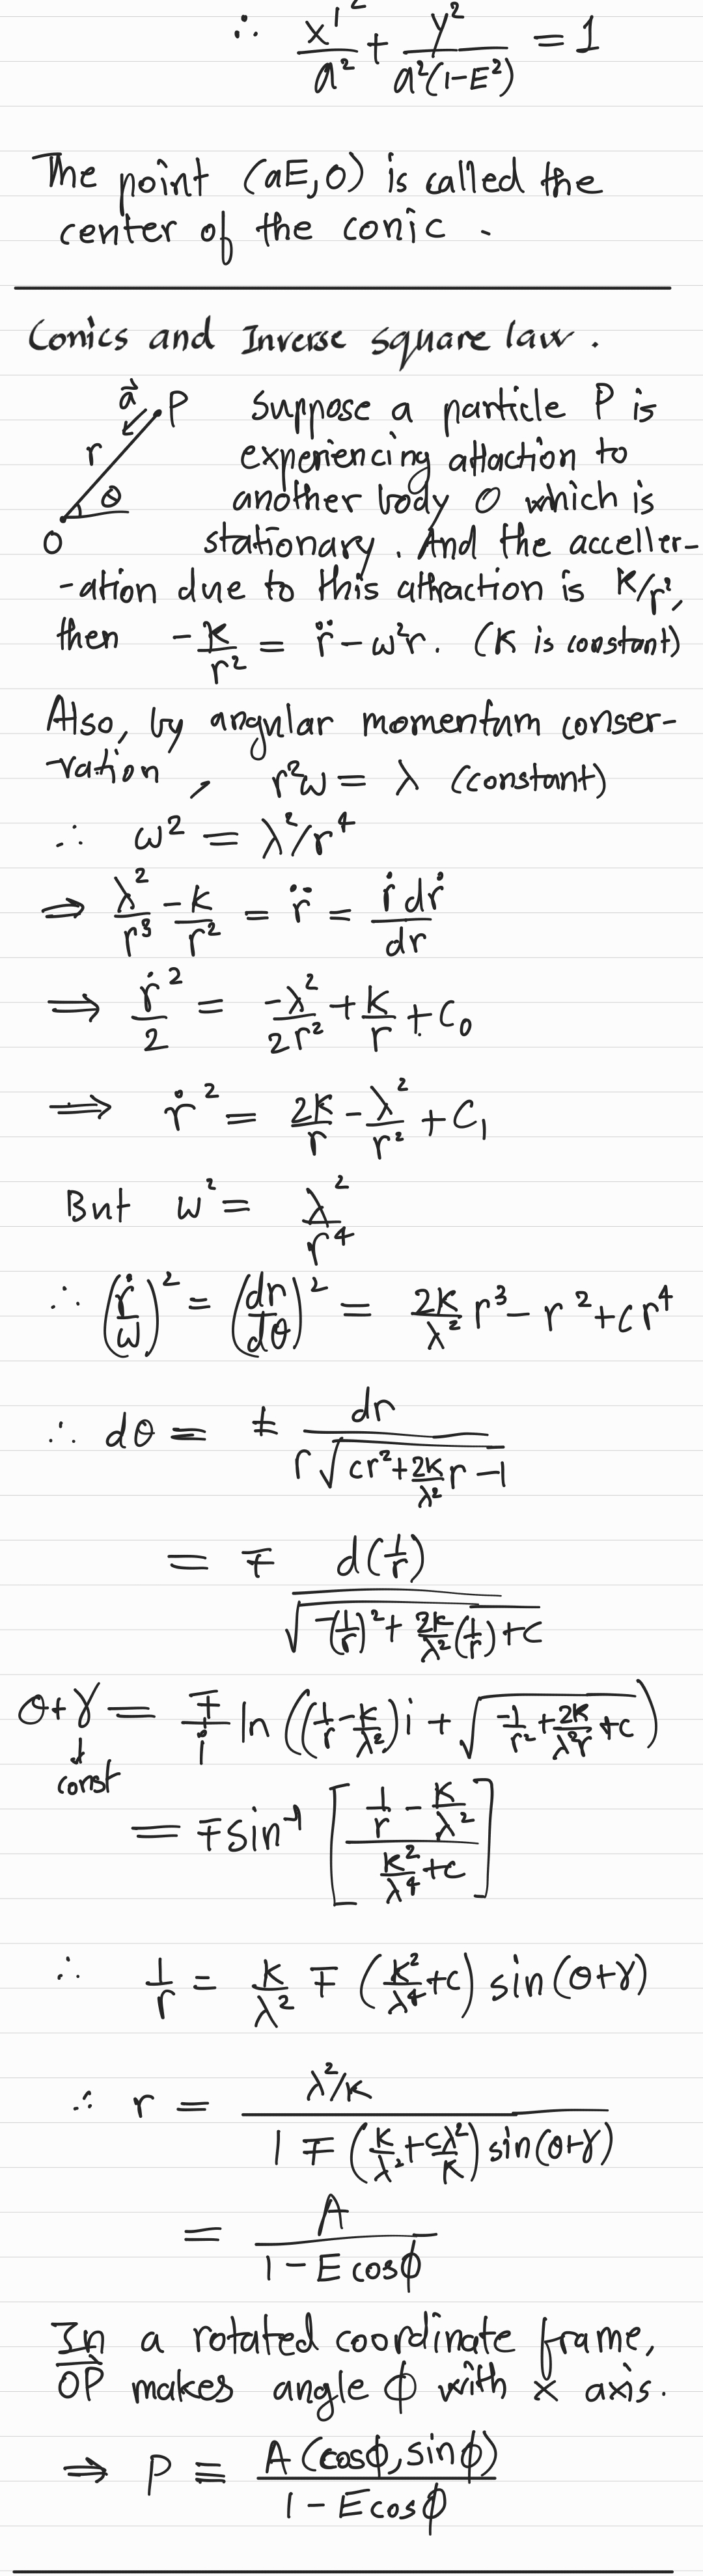 ∴ x'²/a² + y²/(a²(1-E²)) = 1
The point (aE, 0) is called the
center of the conic .
Conics and Inverse square law .
a⃗ P r θ O
Suppose a particle P is
experiencing attaction to
another body O which is
stationary. And the acceller-
-ation due to this attraction is K/r²,
then -K/r² = r̈ - ω²r. (K is constant)
Also, by angular momentum conser-
-vation , r²ω = λ (constant)
∴ ω² = λ²/r⁴
⟹ λ²/r³ - K/r² = r̈ = ṙdṙ/dr
⟹ ṙ²/2 = -λ²/2r² + K/r + C₀
⟹ ṙ² = 2K/r - λ²/r² + C₁
But ω² = λ²/r⁴
∴ (ṙ/ω)² = (dr/dθ)² = 2K/λ² r³ - r² + cr⁴
∴ dθ = ± dr/(r√(cr² + 2K/λ² r - 1))
= ∓ d(1/r)/√(-(1/r)² + 2K/λ² (1/r) + c)
θ+γ = ∓/i ln((1/r - K/λ²)i + √(-1/r² + 2K/λ²r + c))
↓
const
= ∓sin⁻¹ [(1/r - K/λ²)/(K²/λ⁴ + c)]
∴ 1/r = K/λ² ∓ (K²/λ⁴ + c) sin(θ+γ)
∴ r = (λ²/K)/(1 ∓ (K/λ² + cλ²/K) sin(θ+γ))
= A/(1 - E cosϕ)
In a rotated coordinate frame,
OP makes angle ϕ with x axis.
⟹ P ≡ A(cosϕ, sinϕ)/(1 - E cosϕ)